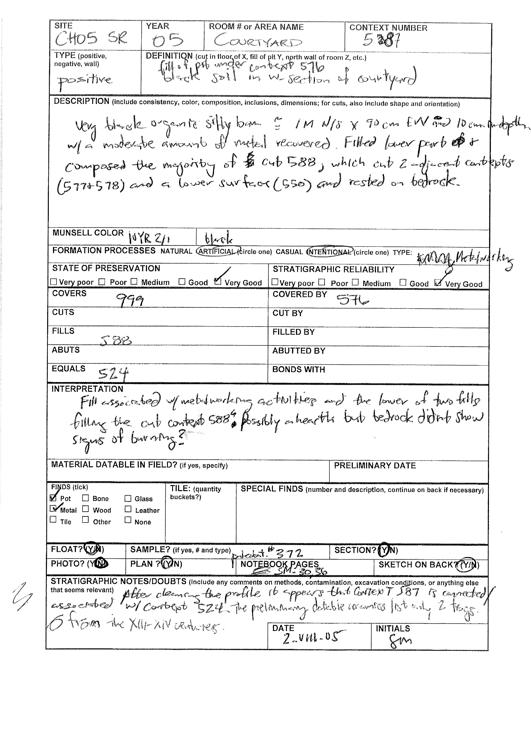 SITE YEAR ROOM # or AREA NAME CONTEXT NUMBER
CH05 SR 05 COURTYARD 587
TYPE (positive, negative, wall) DEFINITION (cut in floor of X, fill of pit Y, north wall of room Z, etc.)
positive fill of pit under context 576
black soil in W-section of courtyard
DESCRIPTION (include consistency, color, composition, inclusions, dimensions; for cuts, also include shape and orientation)
Very black organic silty loam ≈ 1M N/S X 90cm EW and 10cm in depth
w/ a moderate amount of metal recovered. Filled lower part of &
composed the majority of cut 588, which cut 2 adjacent contexts
(577+578) and a lower surface (550) and rested on bedrock.
MUNSELL COLOR 10YR 2/1 black
FORMATION PROCESSES NATURAL ARTIFICIAL (circle one) CASUAL INTENTIONAL (circle one) TYPE: Metalworking
STATE OF PRESERVATION STRATIGRAPHIC RELIABILITY
Very poor Poor Medium Good Very Good Very poor Poor Medium Good Very Good
COVERS 999 COVERED BY 576
CUTS CUT BY
FILLS 588 FILLED BY
ABUTS ABUTTED BY
EQUALS 524 BONDS WITH
INTERPRETATION
Fill associated w/ metalworking activities and the lower of two fills
filling the cut context 588. Possibly a hearth but bedrock didn't show
signs of burning?
MATERIAL DATABLE IN FIELD? (if yes, specify) PRELIMINARY DATE
FINDS (tick) TILE: (quantity buckets?) SPECIAL FINDS (number and description, continue on back if necessary)
Pot Bone Glass
Metal Wood Leather
Tile Other None
FLOAT? (Y/N) SAMPLE? (if yes, # and type) #372 SECTION? (Y/N)
PHOTO? (Y/N) PLAN ? (Y/N) NOTEBOOK PAGES SKETCH ON BACK? (Y/N)
STRATIGRAPHIC NOTES/DOUBTS (Include any comments on methods, contamination, excavation conditions, or anything else
that seems relevant) After cleaning the profile it appears that Context 587 is
associated w/ Context 524. The preliminary datable ceramics list only 2 frags.
from the XIII-XIV centuries.
DATE INITIALS
2-VIII-05 SM